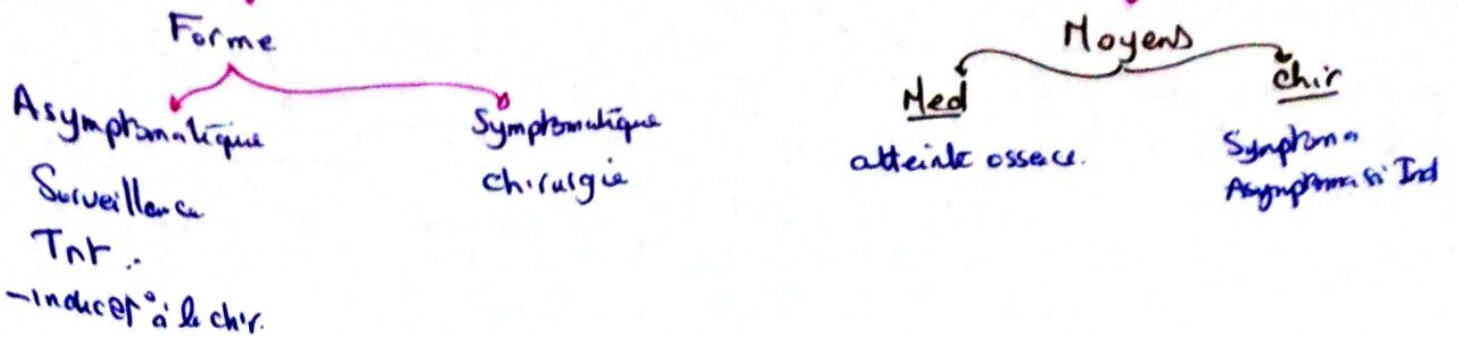 Forme
Asymptomatique
Surveillance
Tnt :
- indicat° à la chir.
Symptomatique
chirurgie
Moyens
Med
atteinte osseuse.
chir
Symptoma
Asymptoma si Ind